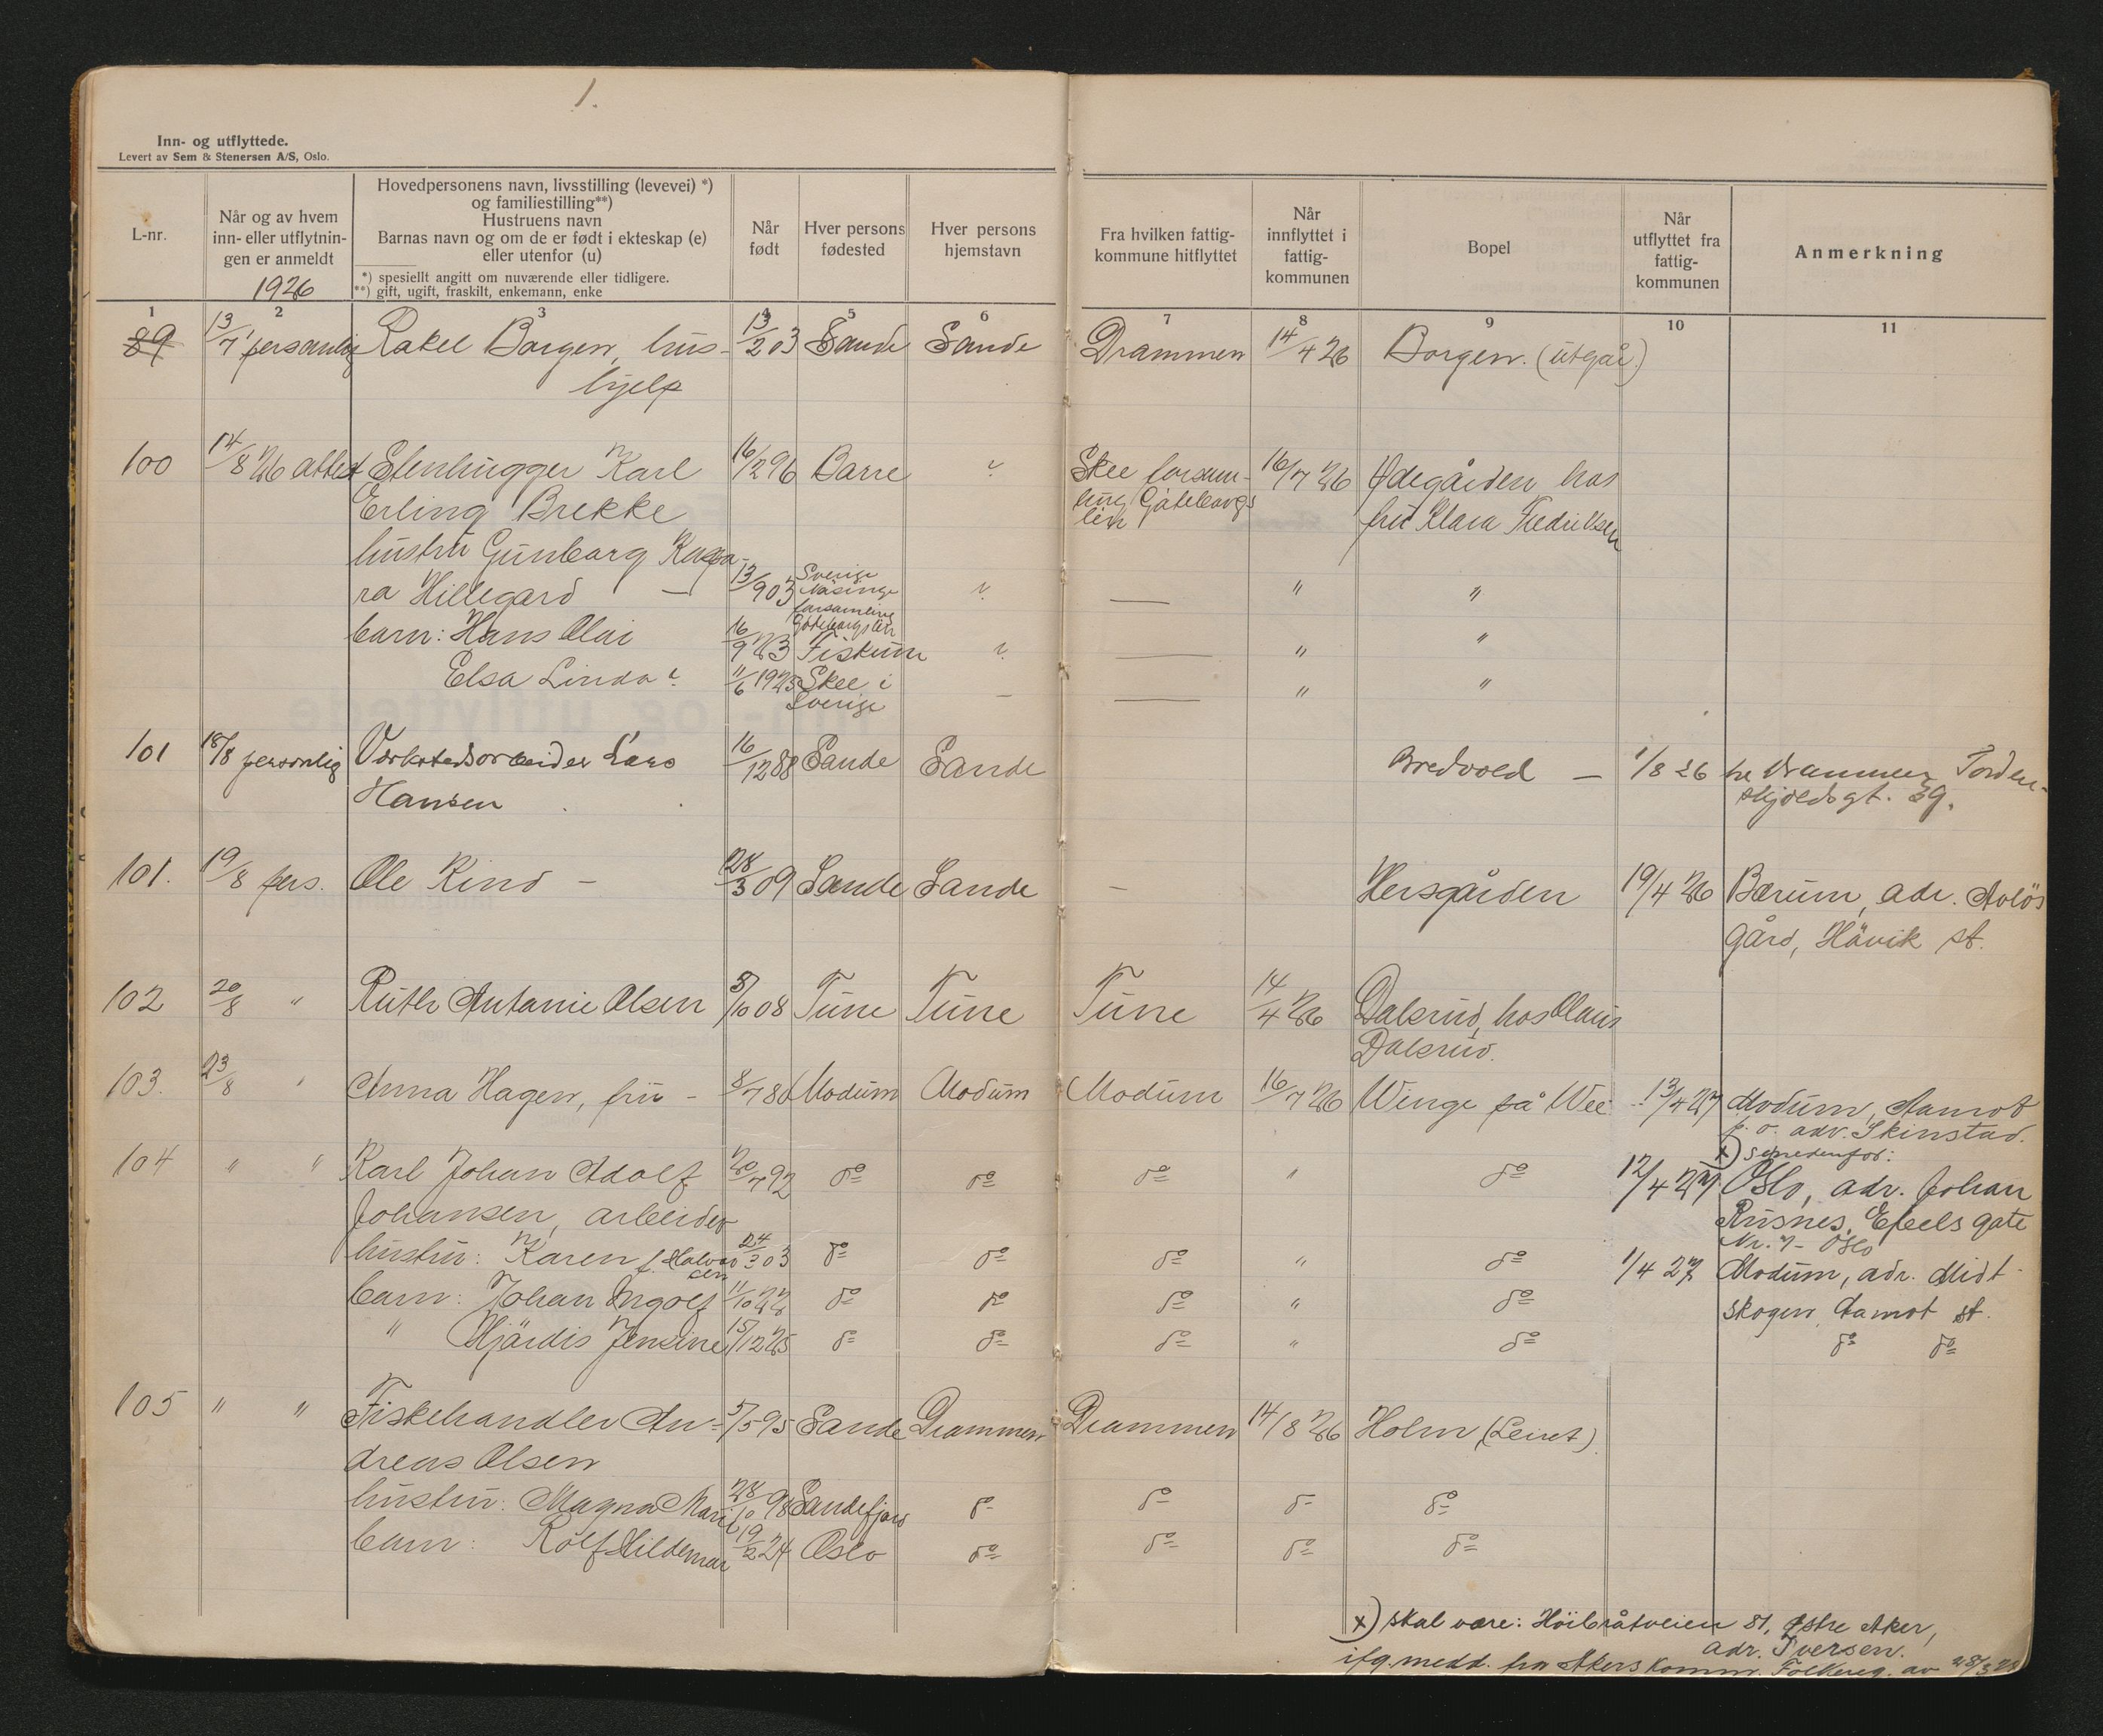 1.
Inn- og utflyttede.
Levert av Sem & Stenersen A/S, Oslo.
L-nr.
Når og av hvem
inn- eller utflytnin-
gen er anmeldt
1926
Hovedpersonens navn, livsstilling (levevei) *)
og familiestilling**)
Hustruens navn
Barnas navn og om de er født i ekteskap (e)
eller utenfor (u)
*) spesiellt angitt om nuværende eller tidligere.
**) gift, ugift, fraskilt, enkemann, enke
Når
født
Hver persons
fødested
Hver persons
hjemstavn
Fra hvilken fattig-
kommune hitflyttet
Når
innflyttet i
fattig-
kommunen
Bopel
Når
utflyttet fra
fattig-
kommunen
Anmerkning
1 2 3 4 5 6 7 8 9 10 11
89 13/7 personlig Rakel Borgen, hus- 13/2 03 Sande Sande Drammen 14/4 26 Borgen. (utgår)
hjelp
100 14/8 26 attest Stenhugger Karl 16/2 96 Borre ? Skee forsam- 16/7 26 Ødegården hos
Erling Brekke ling Göteborgs fru Klara Fredriksen
län
hustru Gunborg
ra Hillegard — 13/9 03 Sverige Näsinge forsamling Göteborgs län ? — " "
barn: Hans Olai 16/9 23 Fiskum ? — " "
Elsa Linda ? 11/6 1925 Skee i — — " "
Sverige
101 18/8 personlig Verkstedsarbeider Lars 16/12 88 Sande Sande Bredvold — 1/8 26 til Drammen Torden-
Hansen skjoldsgt. 39.
101. 19/8 pers. Ole Kind — 28/3 09 Sande Sande — Hersgården 19/4 26 Bærum, adr. Avløs
gård, Hövik st.
102 20/8 " Ruth Antonie Olsen 3/10 08 Tune Tune Tune 14/4 26 Dalsrud, hos Olaus
Dalsrud.
103. 23/8 " Anna Hagen, fru - 8/7 80 Modum Modum Modum 16/7 26 Winge på Wee 13/4 27 Modum, Aamot
p. o. adr. Skinstad.
x) se nedenfor:
104 " " Karl Johan Adolf 20/7 92 do do do " do 12/4 27 Oslo, adr. Johan
Johansen, arbeider Rusnes, Efeels gate
Nr. 7 - Oslo
hustru: Karen f. Halvor 24/3 03 do do do " do 1/4 27 Modum, adr. Midt-
sen
barn: Johan Ingolf 11/10 22 do do do " do skogen, Aamot st.
" Hjördis Jensine 15/12 25 do do do " do do do
105 " " Fiskehandler An- 5/5 95 Sande Drammen Drammen 14/8 26 Holm (Leiret)
dreas Olsen
hustru: Magna Marie 28/10 98 Sandefjord do do do do
barn: Rolf Hildemar 19/2 24 Oslo do do do do
x) skal være: Höibråtveien 81, Østre Aker,
adr. Iversen.
ifg. medd. fra Akers komm. Folkereg. av 28/3